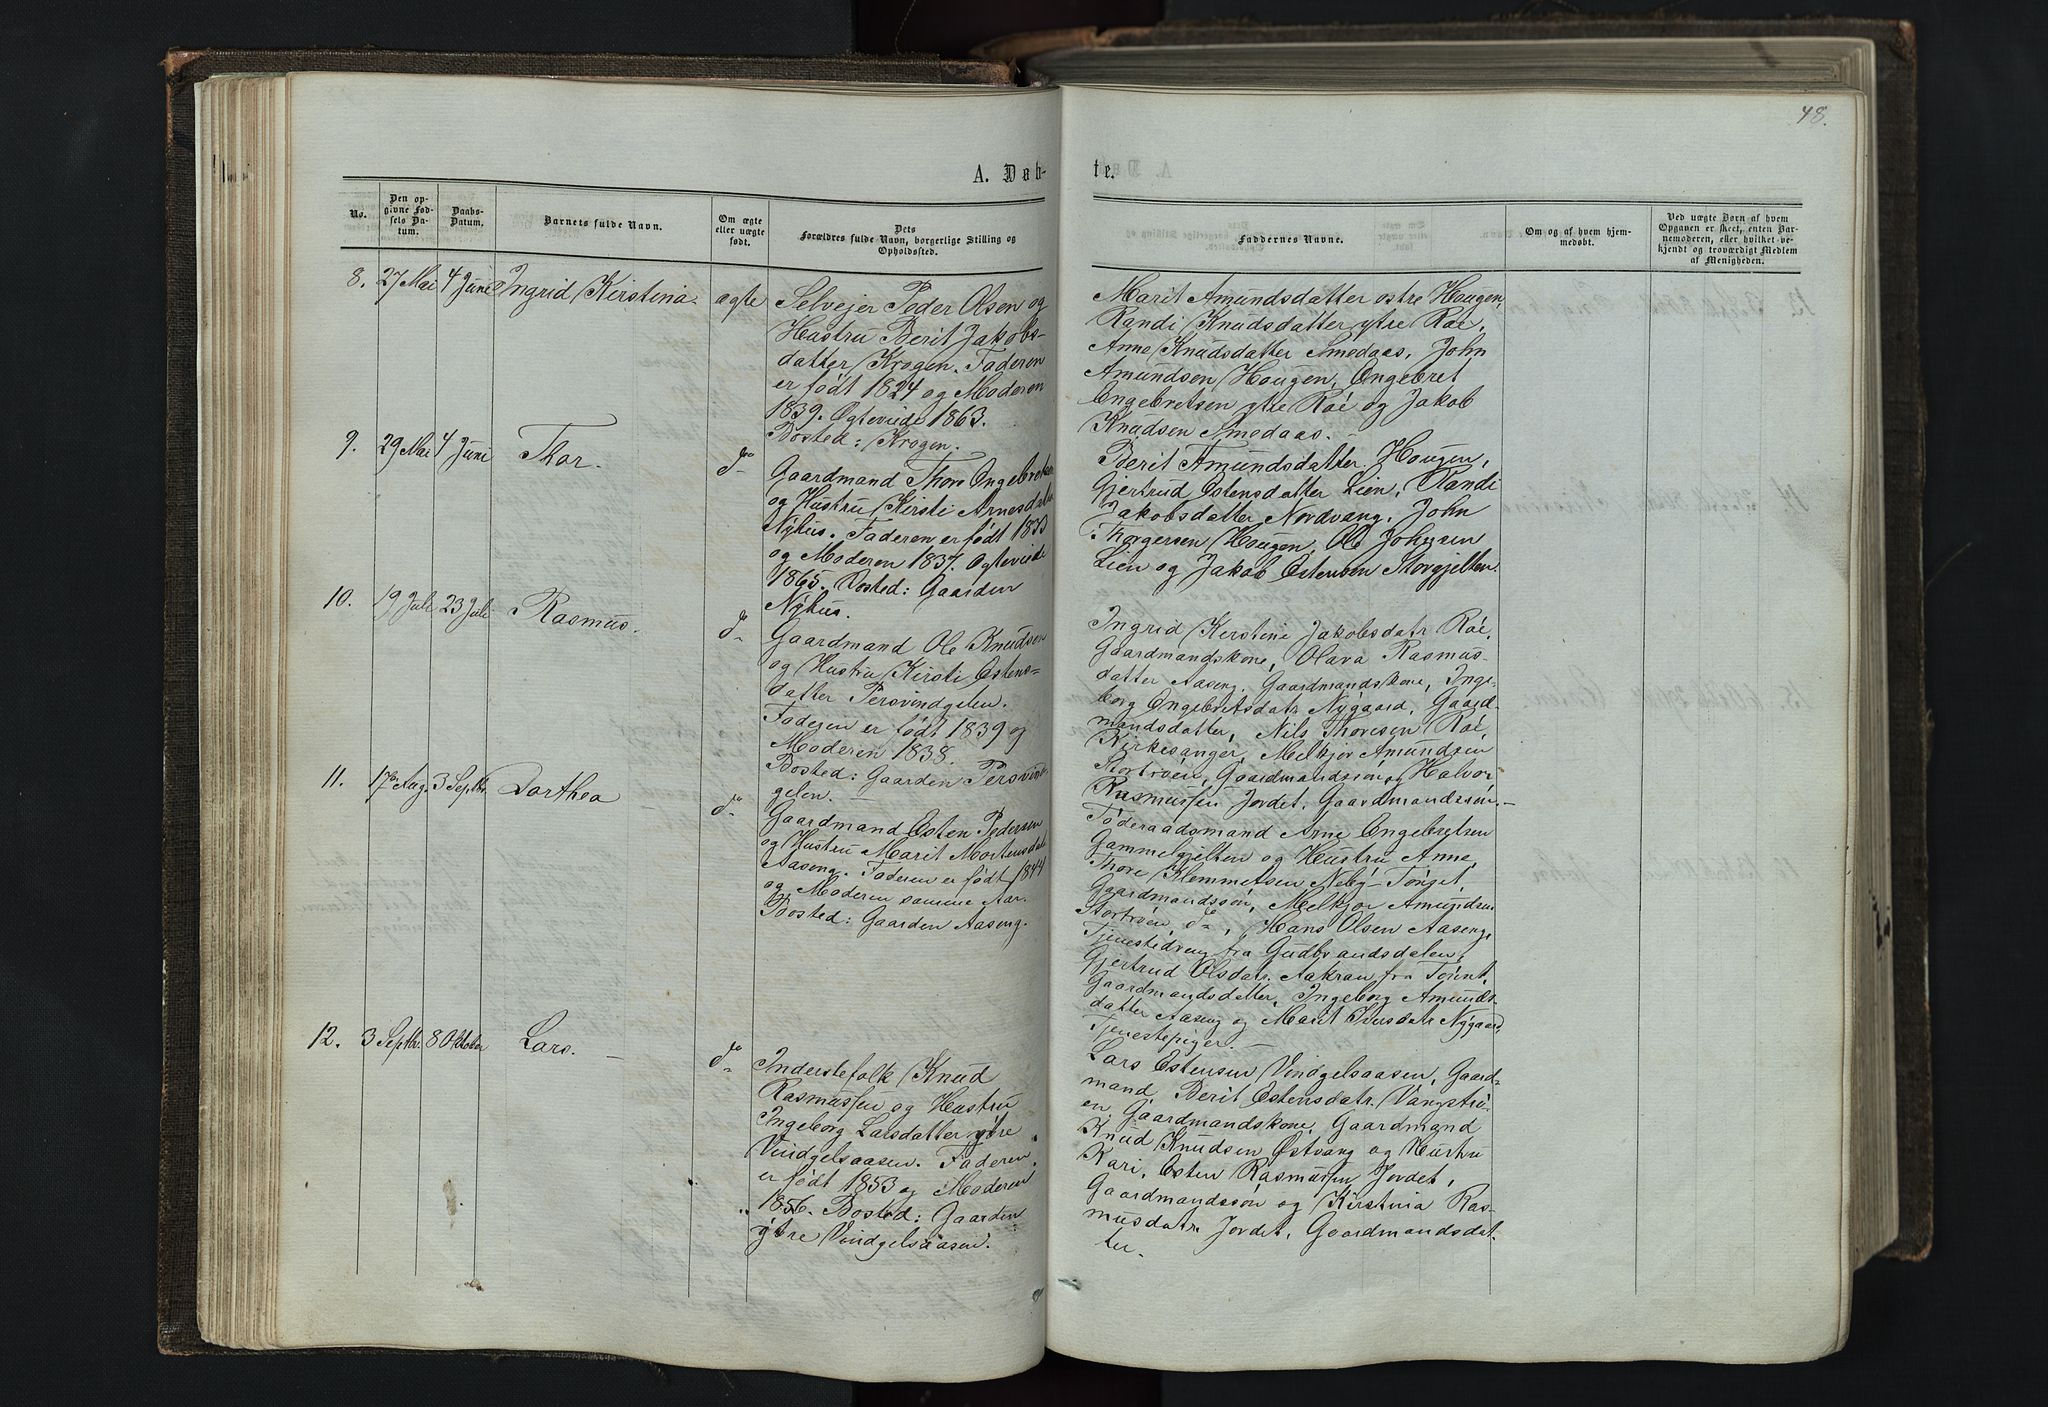 48.
A. Døb-
te.
No.
Den op-
givne Fød-
sels Da-
tum.
Daabs-
Datum.
Barnets fulde Navn.
Om ægte
eller uægte
født.
Dets
Forældres fulde Navn, borgerlige Stilling og
Opholdssted.
Faddernes Navne.
Om og af hvem hjem-
medøbt.
Ved uægte Børn af hvem
Opgaven er skeet, enten Bar-
nemoderen, eller hvilket ve-
kjendt og troværdigt Medlem
af Menigheden.
8. 27 Mai 4 Juni Ingrid Kirstina. ægte
Selvejer Peder Olsen og
Hustru Berit Jakobs-
datter Krogen. Faderen
er født 1824 og Moderen
1839. Ogteviede 1863.
Bosted: Krogen.
Marit Amundsdatter østre Hougen,
Randi Knudsdatter ytre Røe,
Anne Knudsdatter Smedaas, John
Amundsen Hougen, Engebret
Engebretsen ytre Røe og Jakob
Knudsen Smedaas. -
9. 29 Mai 4 Juni Thor. do
Gaardmand Thore Engebretsen
og Hustru Kirsti Arnesdatter
Nyhus. Faderen er født 1833
og Moderen 1837. Ogteviede
1865. Bosted: Gaarden
Nyhus.
Berit Amundsdatter Hougen,
Gjertrud Estensdatter Lien, Randi
Jakobsdatter Nordvang, John
Thorgersen Hougen, Ole Johnsen
Lien og Jakob Estensen Storgjelten.
10. 19 Juli 23 Juli Rasmus. do
Gaardmand Ole Knudsen
og Hustru Kirsti Estens-
datter Persvindgelen.
Faderen er født 1839 og
Moderen 1838.
Bosted: Gaarden Persvind-
gelen.
Ingrid Kerstine Jakobsdatr Røe,
Gaardmandskone, Olava Rasmus-
datter Aaseng, Gaardmandskone, Inge-
borg Engebretsdatr Nygaard, Gaard-
mandsdatter, Nils Thoresen Røe,
Kirkesanger, Melkjor Amundsen
Stortrøen, Gaardmandssøn og Halvor
Rasmussen Jordet, Gaardmandssøn. -
11. 17de Aug. 3 Septbr. Dorthea - do
Gaardmand Esten Pedersen
og Hustru Marit Mortensdatr
Aaseng. Faderen er født 1844
og Moderen samme Aar.
Bosted: Gaarden Aaseng.
Føderaadsmand Arne Engebretsen
Gammelgjelten og Hustru Anne,
Thore Klemmetsen Neby-Tønset,
Gaardmandssøn, Melkjor Amundsen
Stortrøen, do, Hans Olsen Aaseng,
Tjenestedreng fra Gudbrandsdalen,
Gjertrud Olsdatr Aakran fra Tønset,
Gaardmandsdatter, Ingeborg Amunds-
datter Aaseng og Marit Iversdatr Nygaard,
Tjenestepiger. -
12. 3 Septbr. 8 Oktober Lars. - do
Inderstefolk Knud
Rasmussen og Hustru
Ingeborg Larsdatter ytre
Vindgelsaasen. Faderen
er født 1853 og Moderen
1856. Bosted: Gaarden
ytre Vindgelsaasen.
Lars Estensen Vindgelsaasen, Gaard-
mand, Berit Estensdatr Vangstrø-
en, Gaardmandskone, Gaardmand
Knud Knudsen Østvang og Hustru
Kari, Esten Rasmussen Jordet,
Gaardmandssøn og Kirstina Ras-
musdatr. Jordet, Gaardmandsdat-
ter.